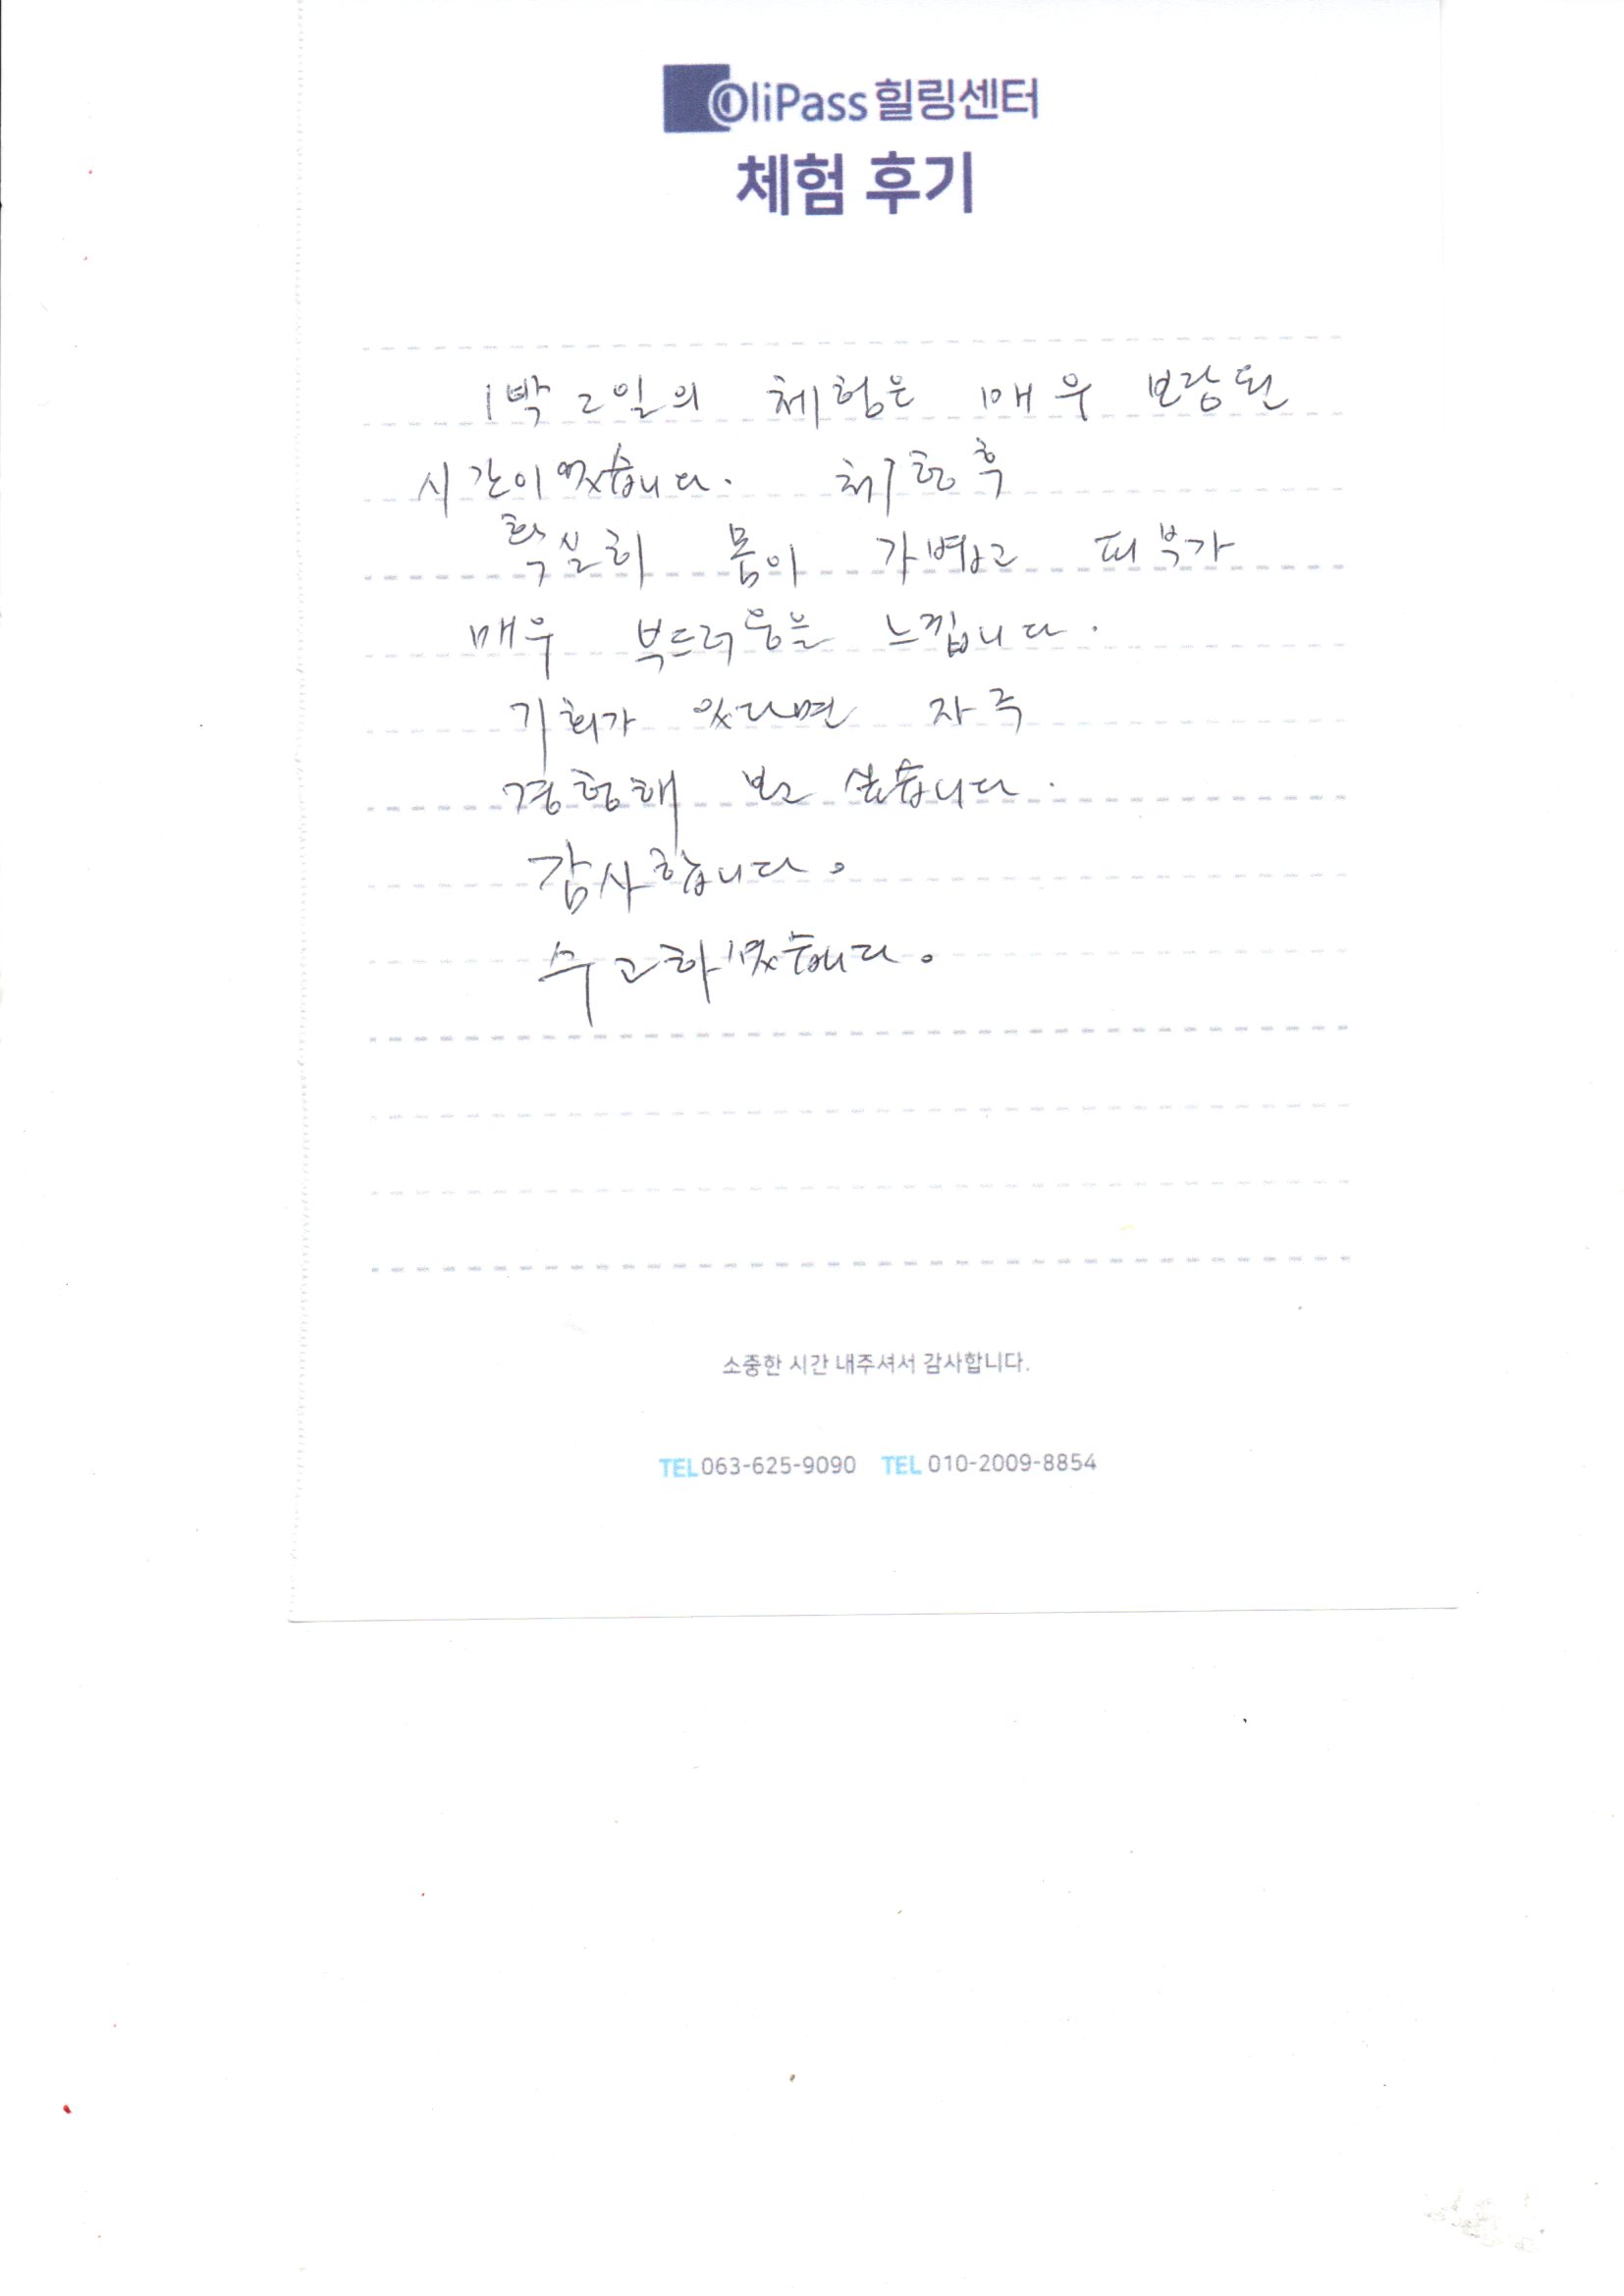 OliPass 힐링센터
체험 후기
1박 2일의 체험은 매우 보람된
시간이였습니다. 체험후
확실히 몸이 가볍고 피부가
매우 부드러움을 느낍니다.
기회가 있다면 자주
경험해 보고 싶습니다.
감사합니다.
수고하셨습니다.
소중한 시간 내주셔서 감사합니다.
TEL 063-625-9090 TEL 010-2009-8854